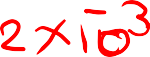 2 × 10³